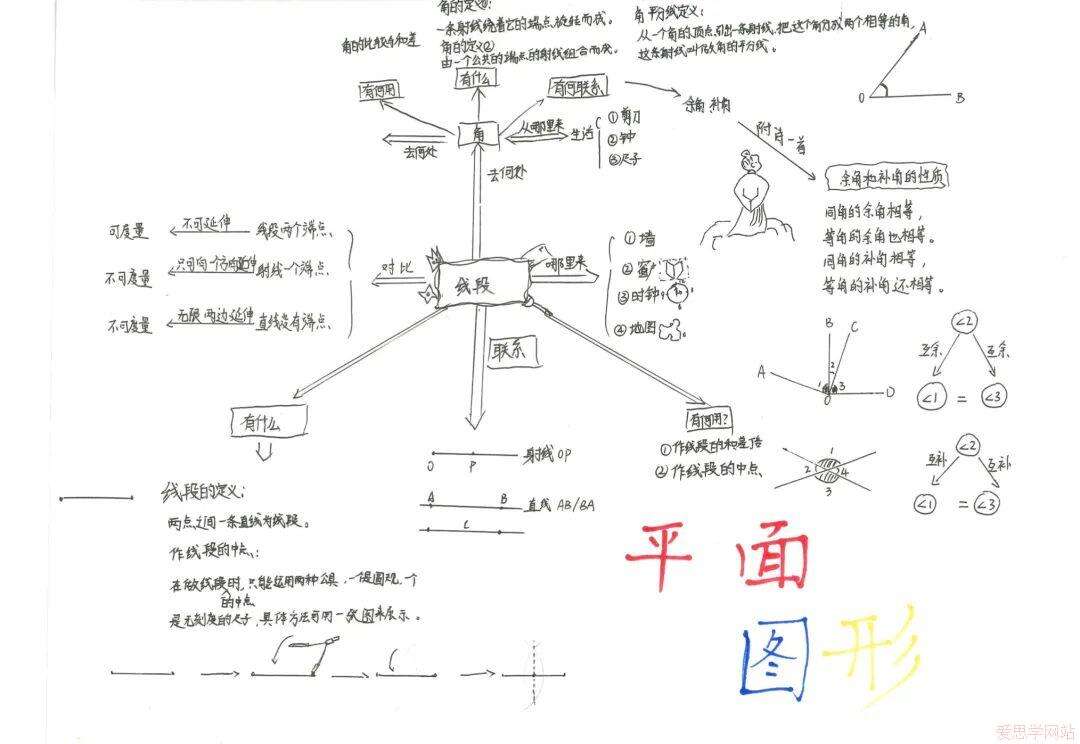 角的定义①:
一条射线绕着它的端点旋转而成。
角的定义②
由一个公共的端点的射线组合而成。
角平分线定义:
从一个角的顶点引出一条射线,把这个角分成两个相等的角,
这条射线叫做角的平分线。
A
O
B
角的比较与和差
有何用
有什么
有何联系
余角 补角
附诗一首
角
去何处
从哪里来
生活
①剪刀
②钟
③尺子
去何处
余角和补角的性质
同角的余角相等,
等角的余角也相等。
同角的补角相等,
等角的补角还相等。
可度量
不可延伸
线段两个端点、
不可度量
只可向一个方向延伸
射线一个端点、
不可度量
无限两边延伸
直线没有端点、
对比
线段
哪里来
①墙
②窗户
③时钟
④地图
联系
有什么
有何用?
①作线段的和差倍
②作线段的中点、
A
B
C
D
O
1
2
3
∠2
互余
互余
∠1 = ∠3
1
2
4
3
∠2
互补
互补
∠1 = ∠3
O P
射线OP
A B
直线 AB/BA
线段的定义:
两点之间一条直线为线段。
作线段的中点、:
在做线段时,只能运用两种公具,一是圆规,一个
的中点
是无刻度的尺子,具体方法可用一张图来展示。
平面
图形
爱思学网站